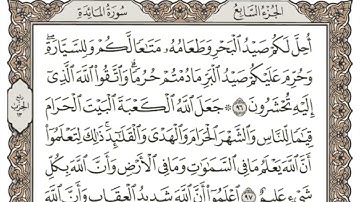 سُورَةُ المَائـِدَةِ
الجُزْءُ السَّابِعُ
أُحِلَّ لَكُمْ صَيْدُ الْبَحْرِ وَطَعَامُهُ مَتَاعًا لَّكُمْ وَلِلسَّيَّارَةِ
وَحُرِّمَ عَلَيْكُمْ صَيْدُ الْبَرِّ مَا دُمْتُمْ حُرُمًا وَاتَّقُوا اللَّهَ الَّذِي
إِلَيْهِ تُحْشَرُونَ ٩٦ جَعَلَ اللَّهُ الْكَعْبَةَ الْبَيْتَ الْحَرَامَ
قِيَامًا لِّلنَّاسِ وَالشَّهْرَ الْحَرَامَ وَالْهَدْيَ وَالْقَلَائِدَ ذَٰلِكَ لِتَعْلَمُوا
أَنَّ اللَّهَ يَعْلَمُ مَا فِي السَّمَاوَاتِ وَمَا فِي الْأَرْضِ وَأَنَّ اللَّهَ بِكُلِّ
شَيْءٍ عَلِيمٌ ٩٧ اعْلَمُوا أَنَّ اللَّهَ شَدِيدُ الْعِقَابِ وَأَنَّ اللَّهَ